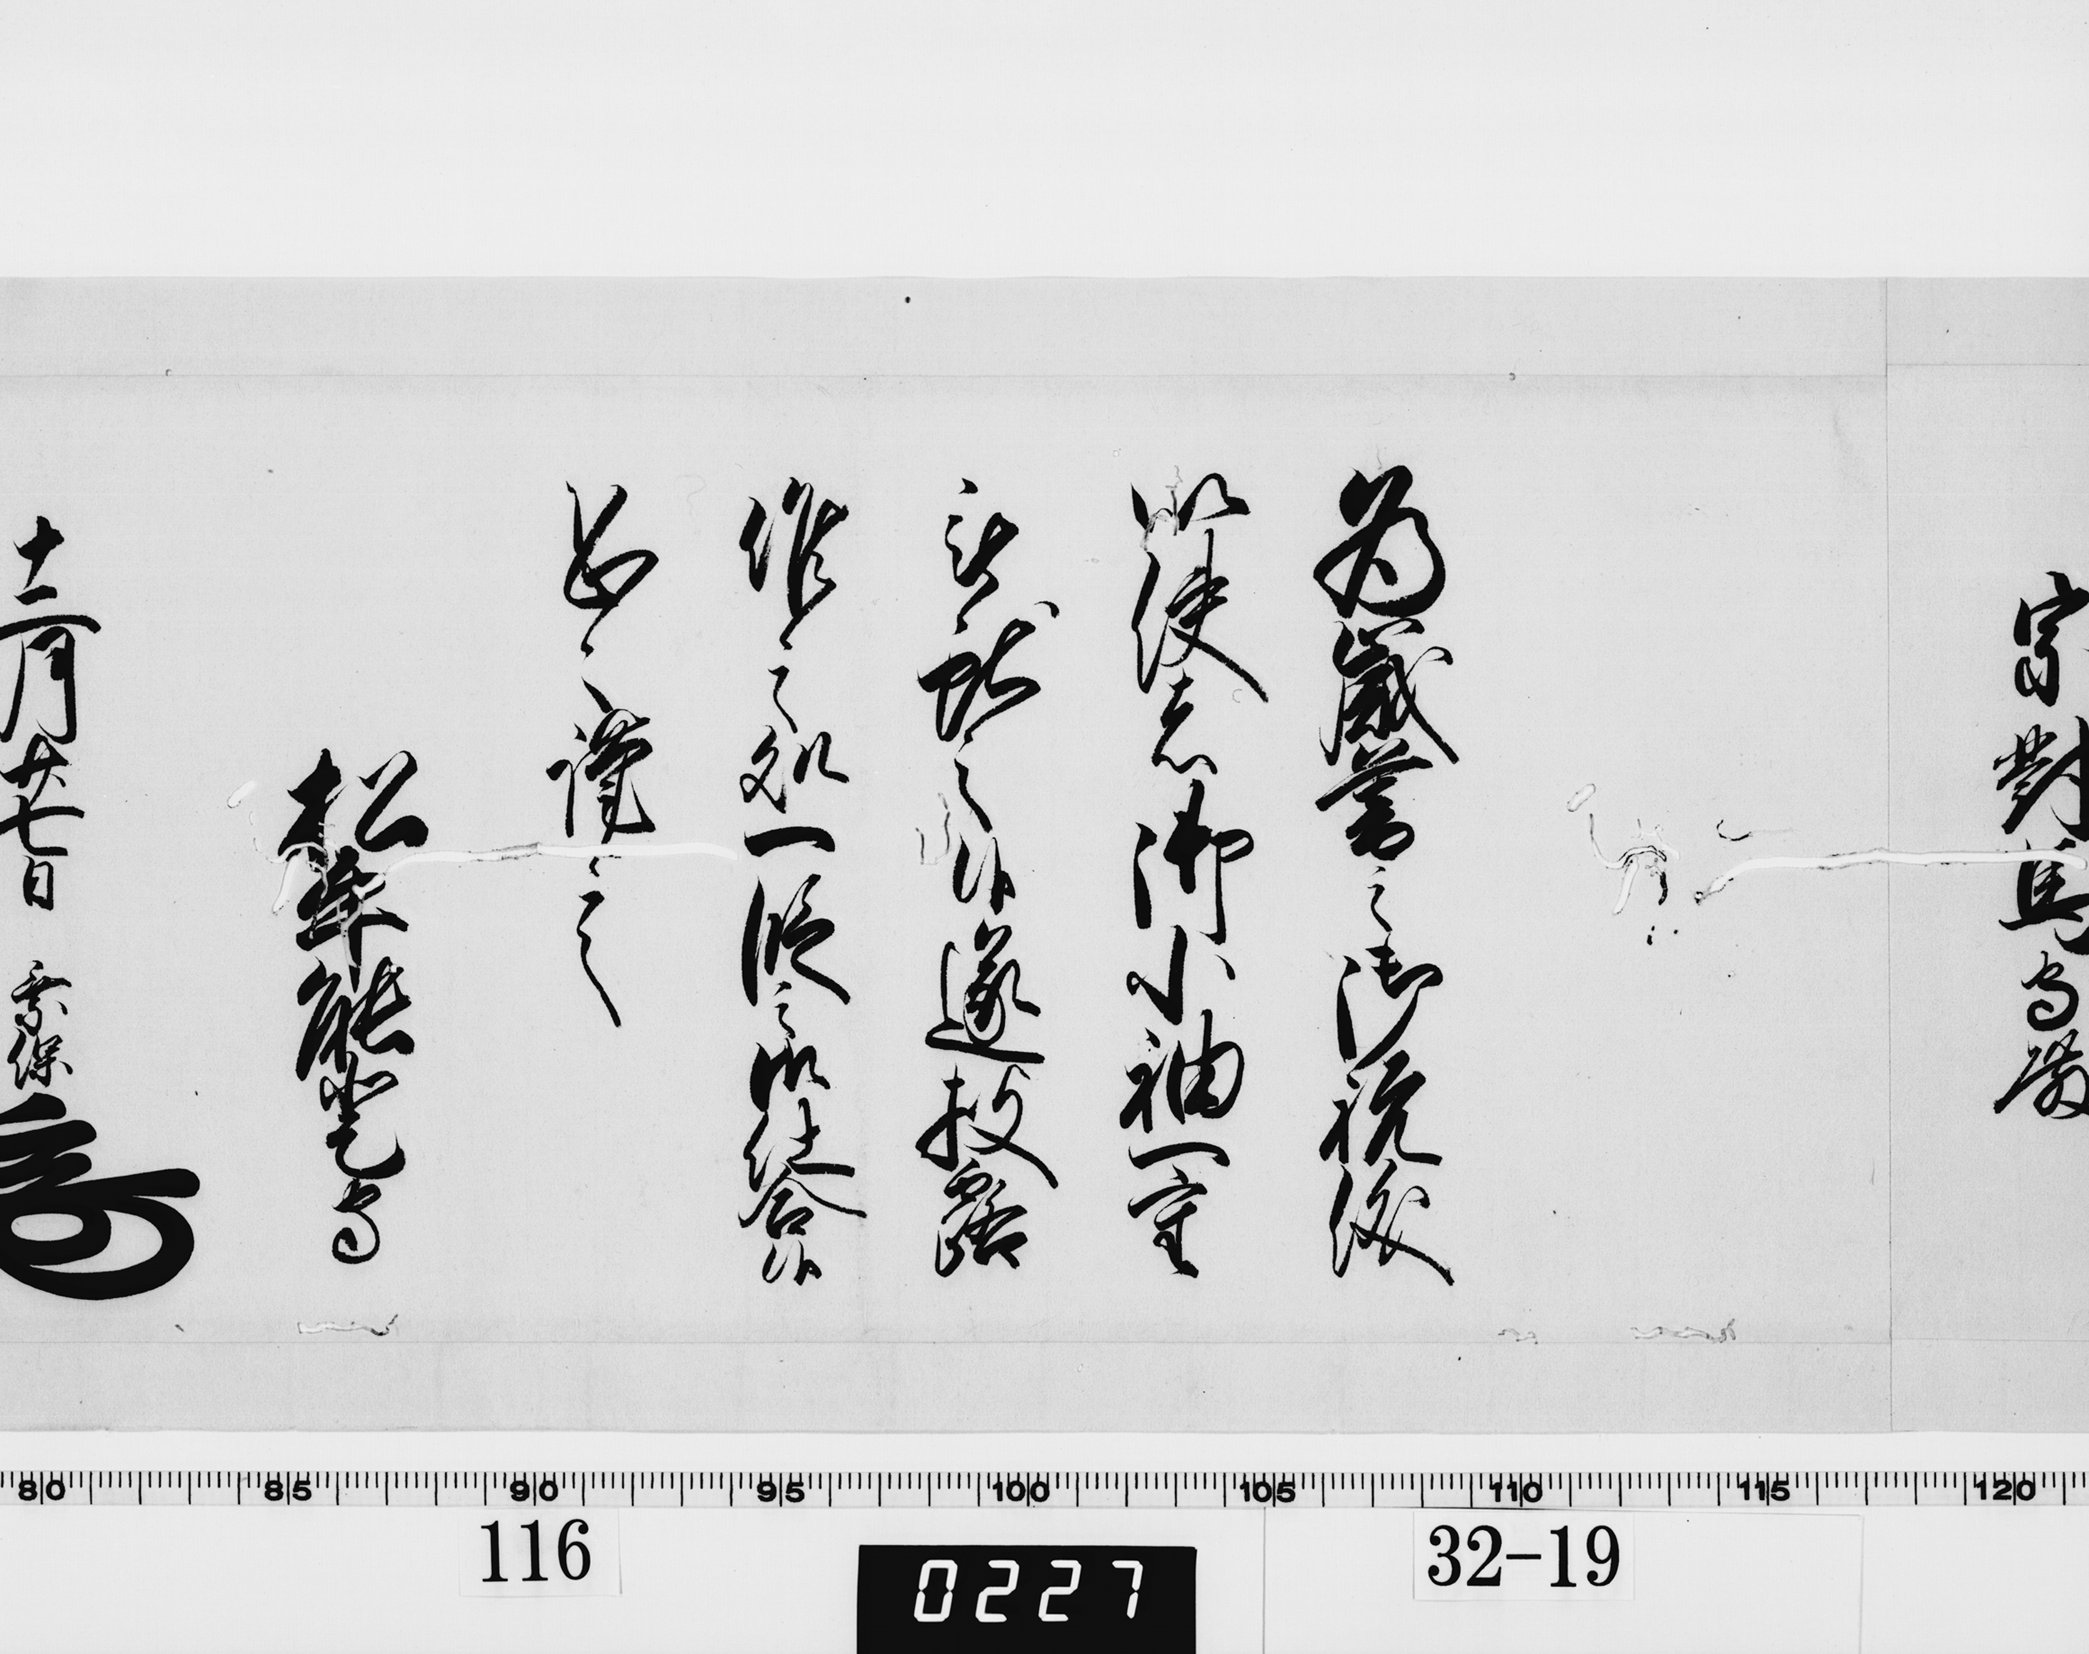 宗對馬守殿
為歳暮之御祝儀
以使者御小袖一重
被獻之候遂披露
候之処一段之御仕合候
恐々謹言
松平能登守
十二月廿七日 乗保
80 85 90 95 100 105 110 115 120
116
0227
32-19